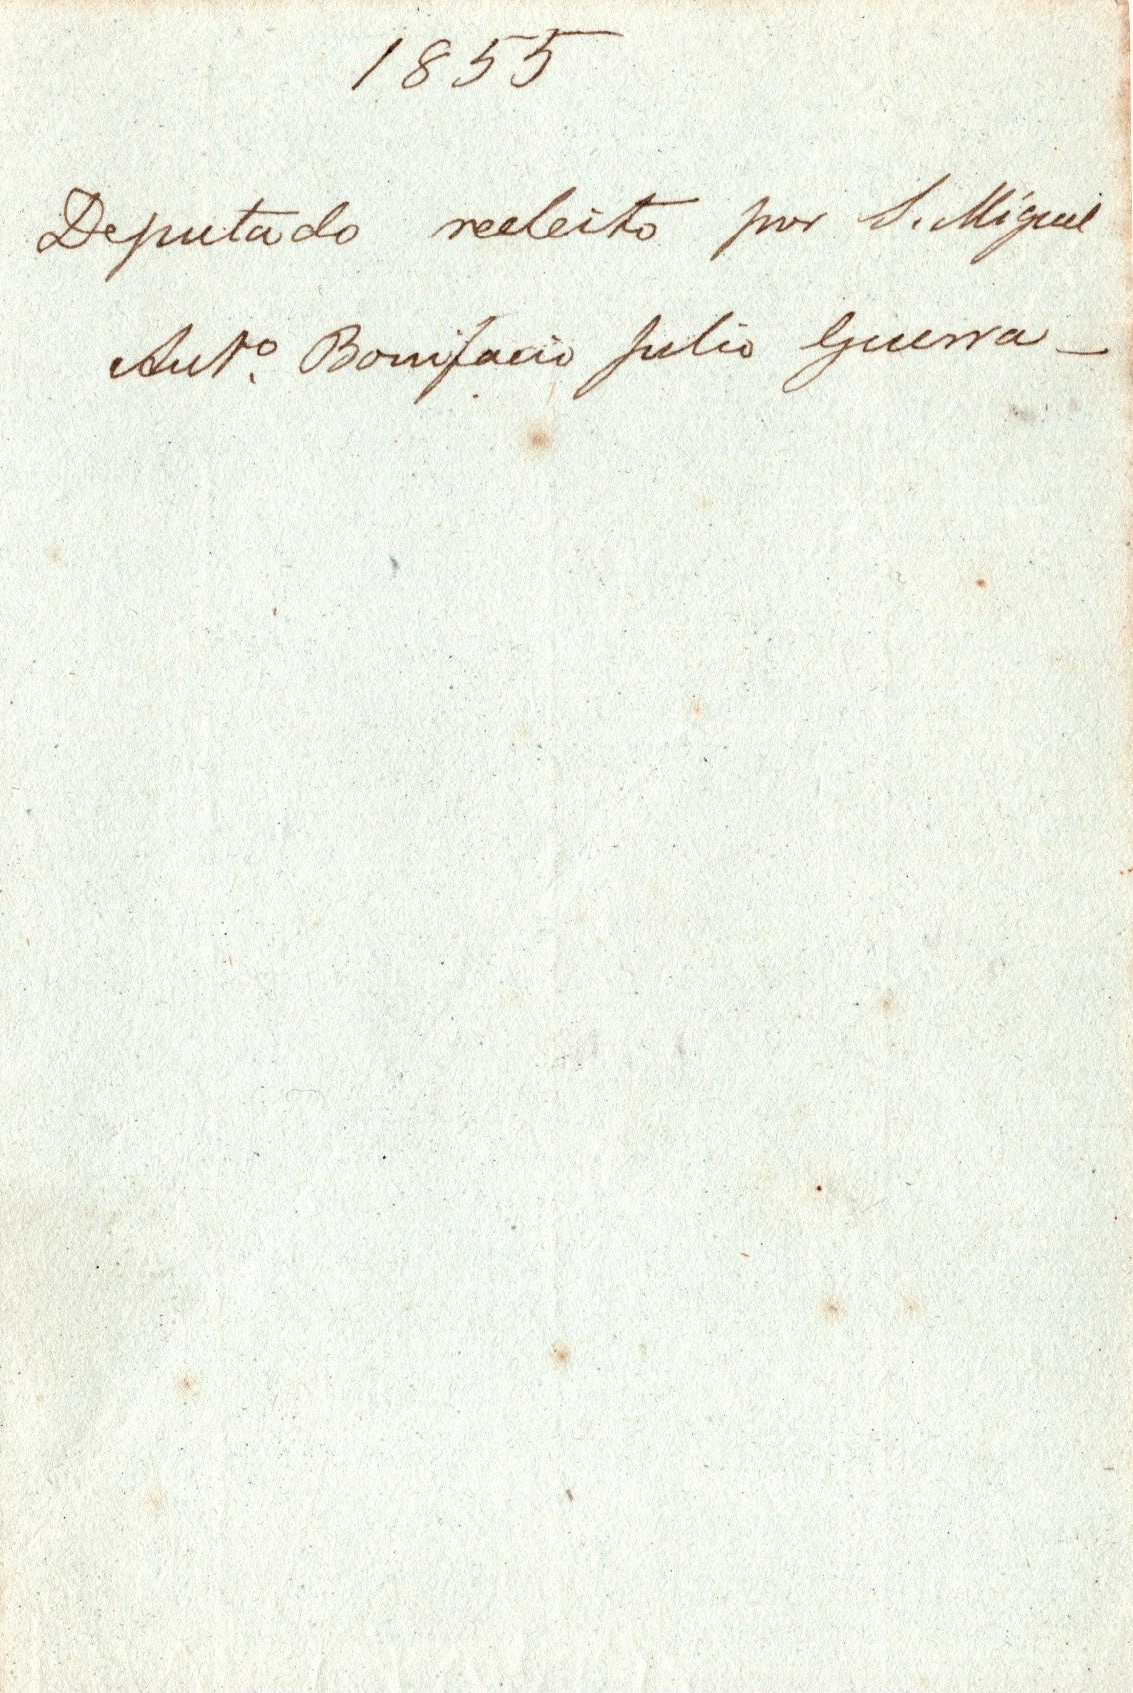 1855
Deputado reeleito por S. Miguel
Antº. Bonifacio Julio Guerra —